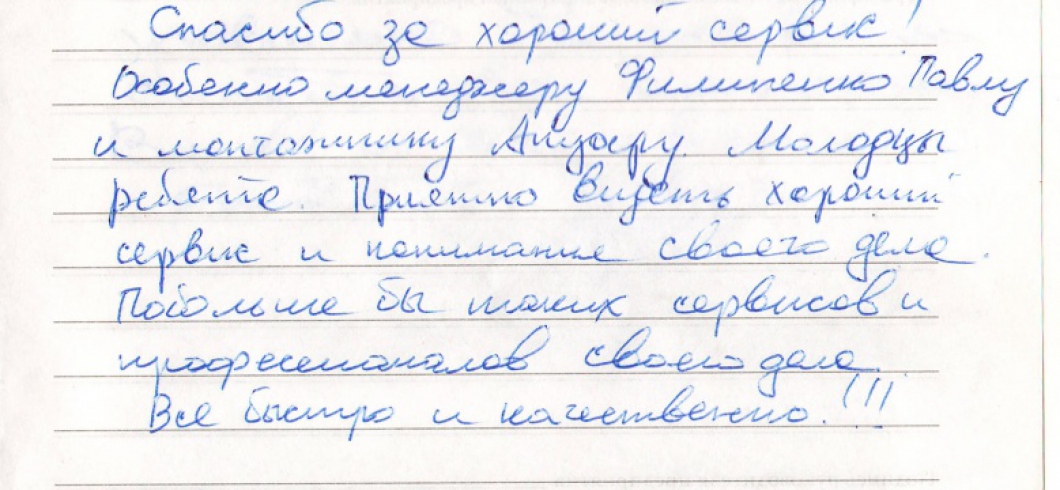 Спасибо за хороший сервис!
Особенно менеджеру Филипенко Павлу
и монтажнику Анзору. Молодцы
ребята. Приятно видеть хороший
сервис и понимание своего дела.
Побольше бы таких сервисов и
профессионалов своего дела.
Все быстро и качественно.!!!